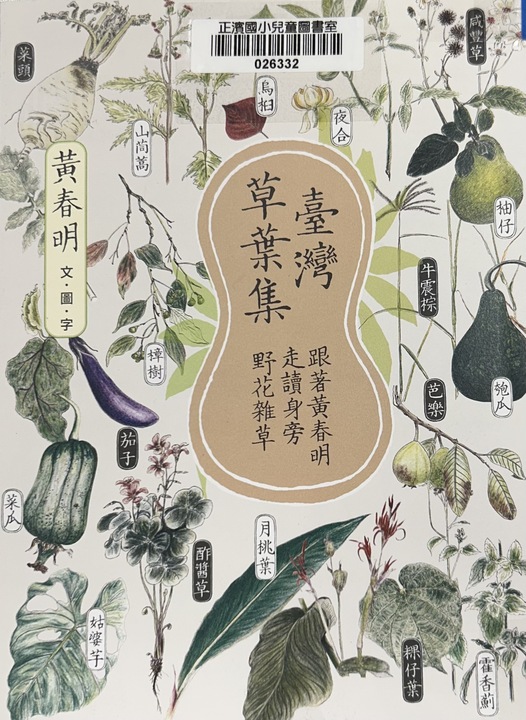 正濱國小兒童圖書室
026332
菜頭
山茼蒿
烏桕
夜合
咸豐草
黃春明 文・圖・字
臺灣
草葉集
跟著黃春明
走讀身旁
野花雜草
柚仔
牛震棕
匏瓜
芭樂
樟樹
茄子
菜瓜
酢醬草
月挑葉
姑婆芋
粿仔葉
霍香薊